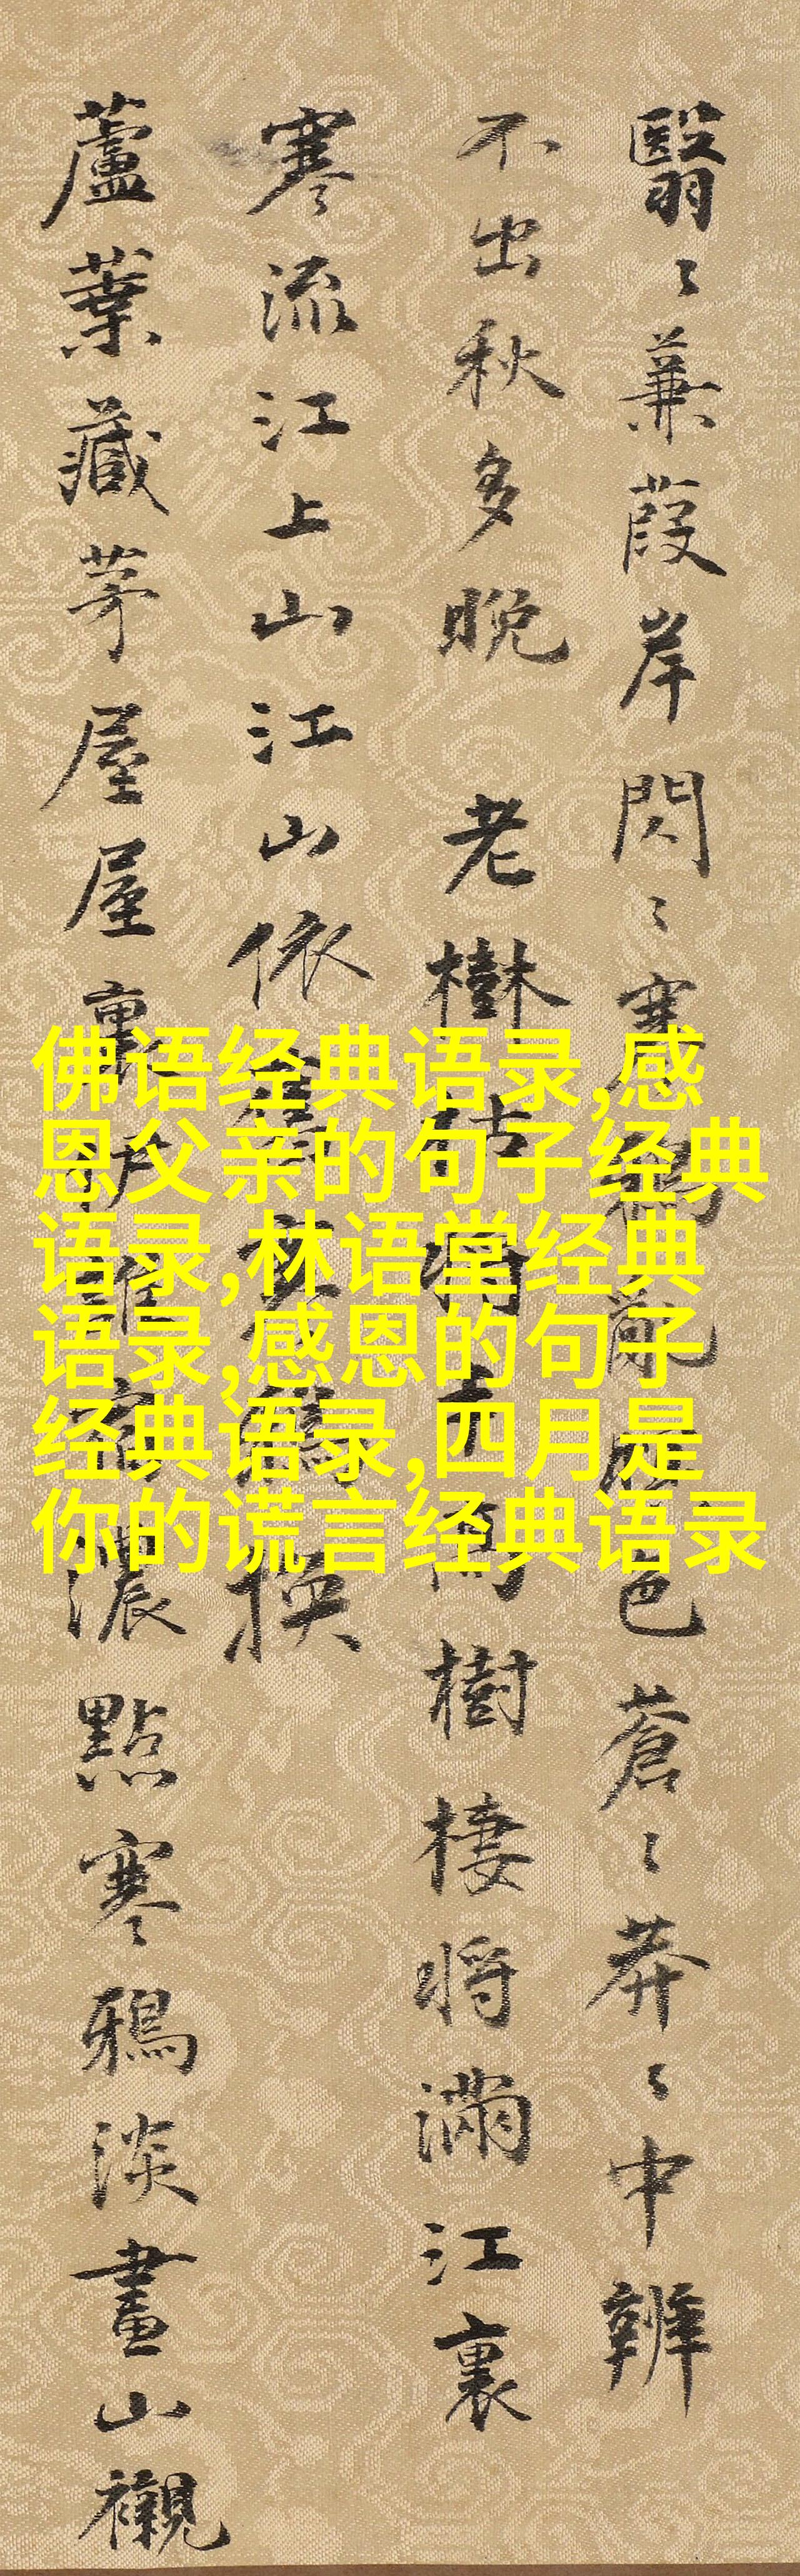 翳〻蒹葭岸閃〻寒鴉亂色蒼〻莽〻中辨
不出秋多晚 老樹枯將高樹棲將滿江裏
寒流江上山江山依舊換
蘆葉藏茅屋屋裏伊誰宿濃點寒鴉淡畫山襯
佛语经典语录,感
恩父亲的句子经典
语录,林语堂经典
语录,感恩的句子
经典语录,四月是
你的谎言经典语录